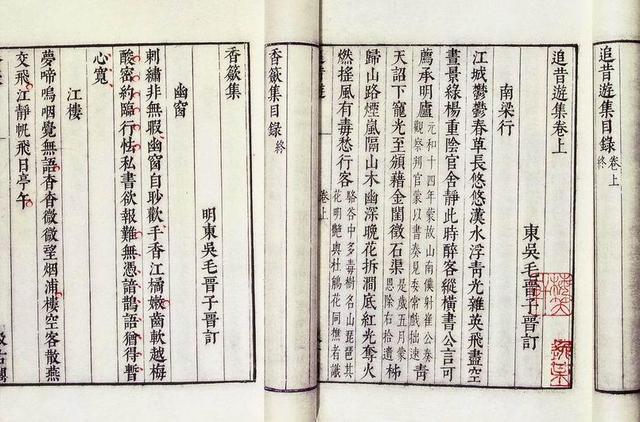 追昔遊集目錄 卷上 終
追昔遊集卷上
東吳毛晉子晉訂
南梁行
江城鬱鬱春草長悠悠漢水浮青光雜英飛盡空
晝景綠楊重陰官舍靜此時醉客縱橫書公言可
薦承明廬 元和十四年蒙故山南僕射崔公奏 觀察判官蒙以書奏見委常戲拙速 青
天詔下寵光至頒籍金閨徵石渠 是歲五月蒙 恩除右拾遺 秭
歸山路煙嵐隔山木幽深晚花拆澗底紅光奪火
燃搖風有毒愁行客 駱谷中多毒樹名山琵琶其 花明艷與杜鵑花同樵者識
卷上
香籢集目錄 終
香籢集
明東吳毛晉子晉訂
幽窗
刺繡非無暇幽窗自尠歡手香江橘嫩齒軟越梅
酸密約臨行怯私書欲報難無憑諳鵲語猶得暫
心寬
江樓
夢啼嗚咽覺無語杳杳微微望烟浦樓空客散燕
交飛江靜帆飛日亭午